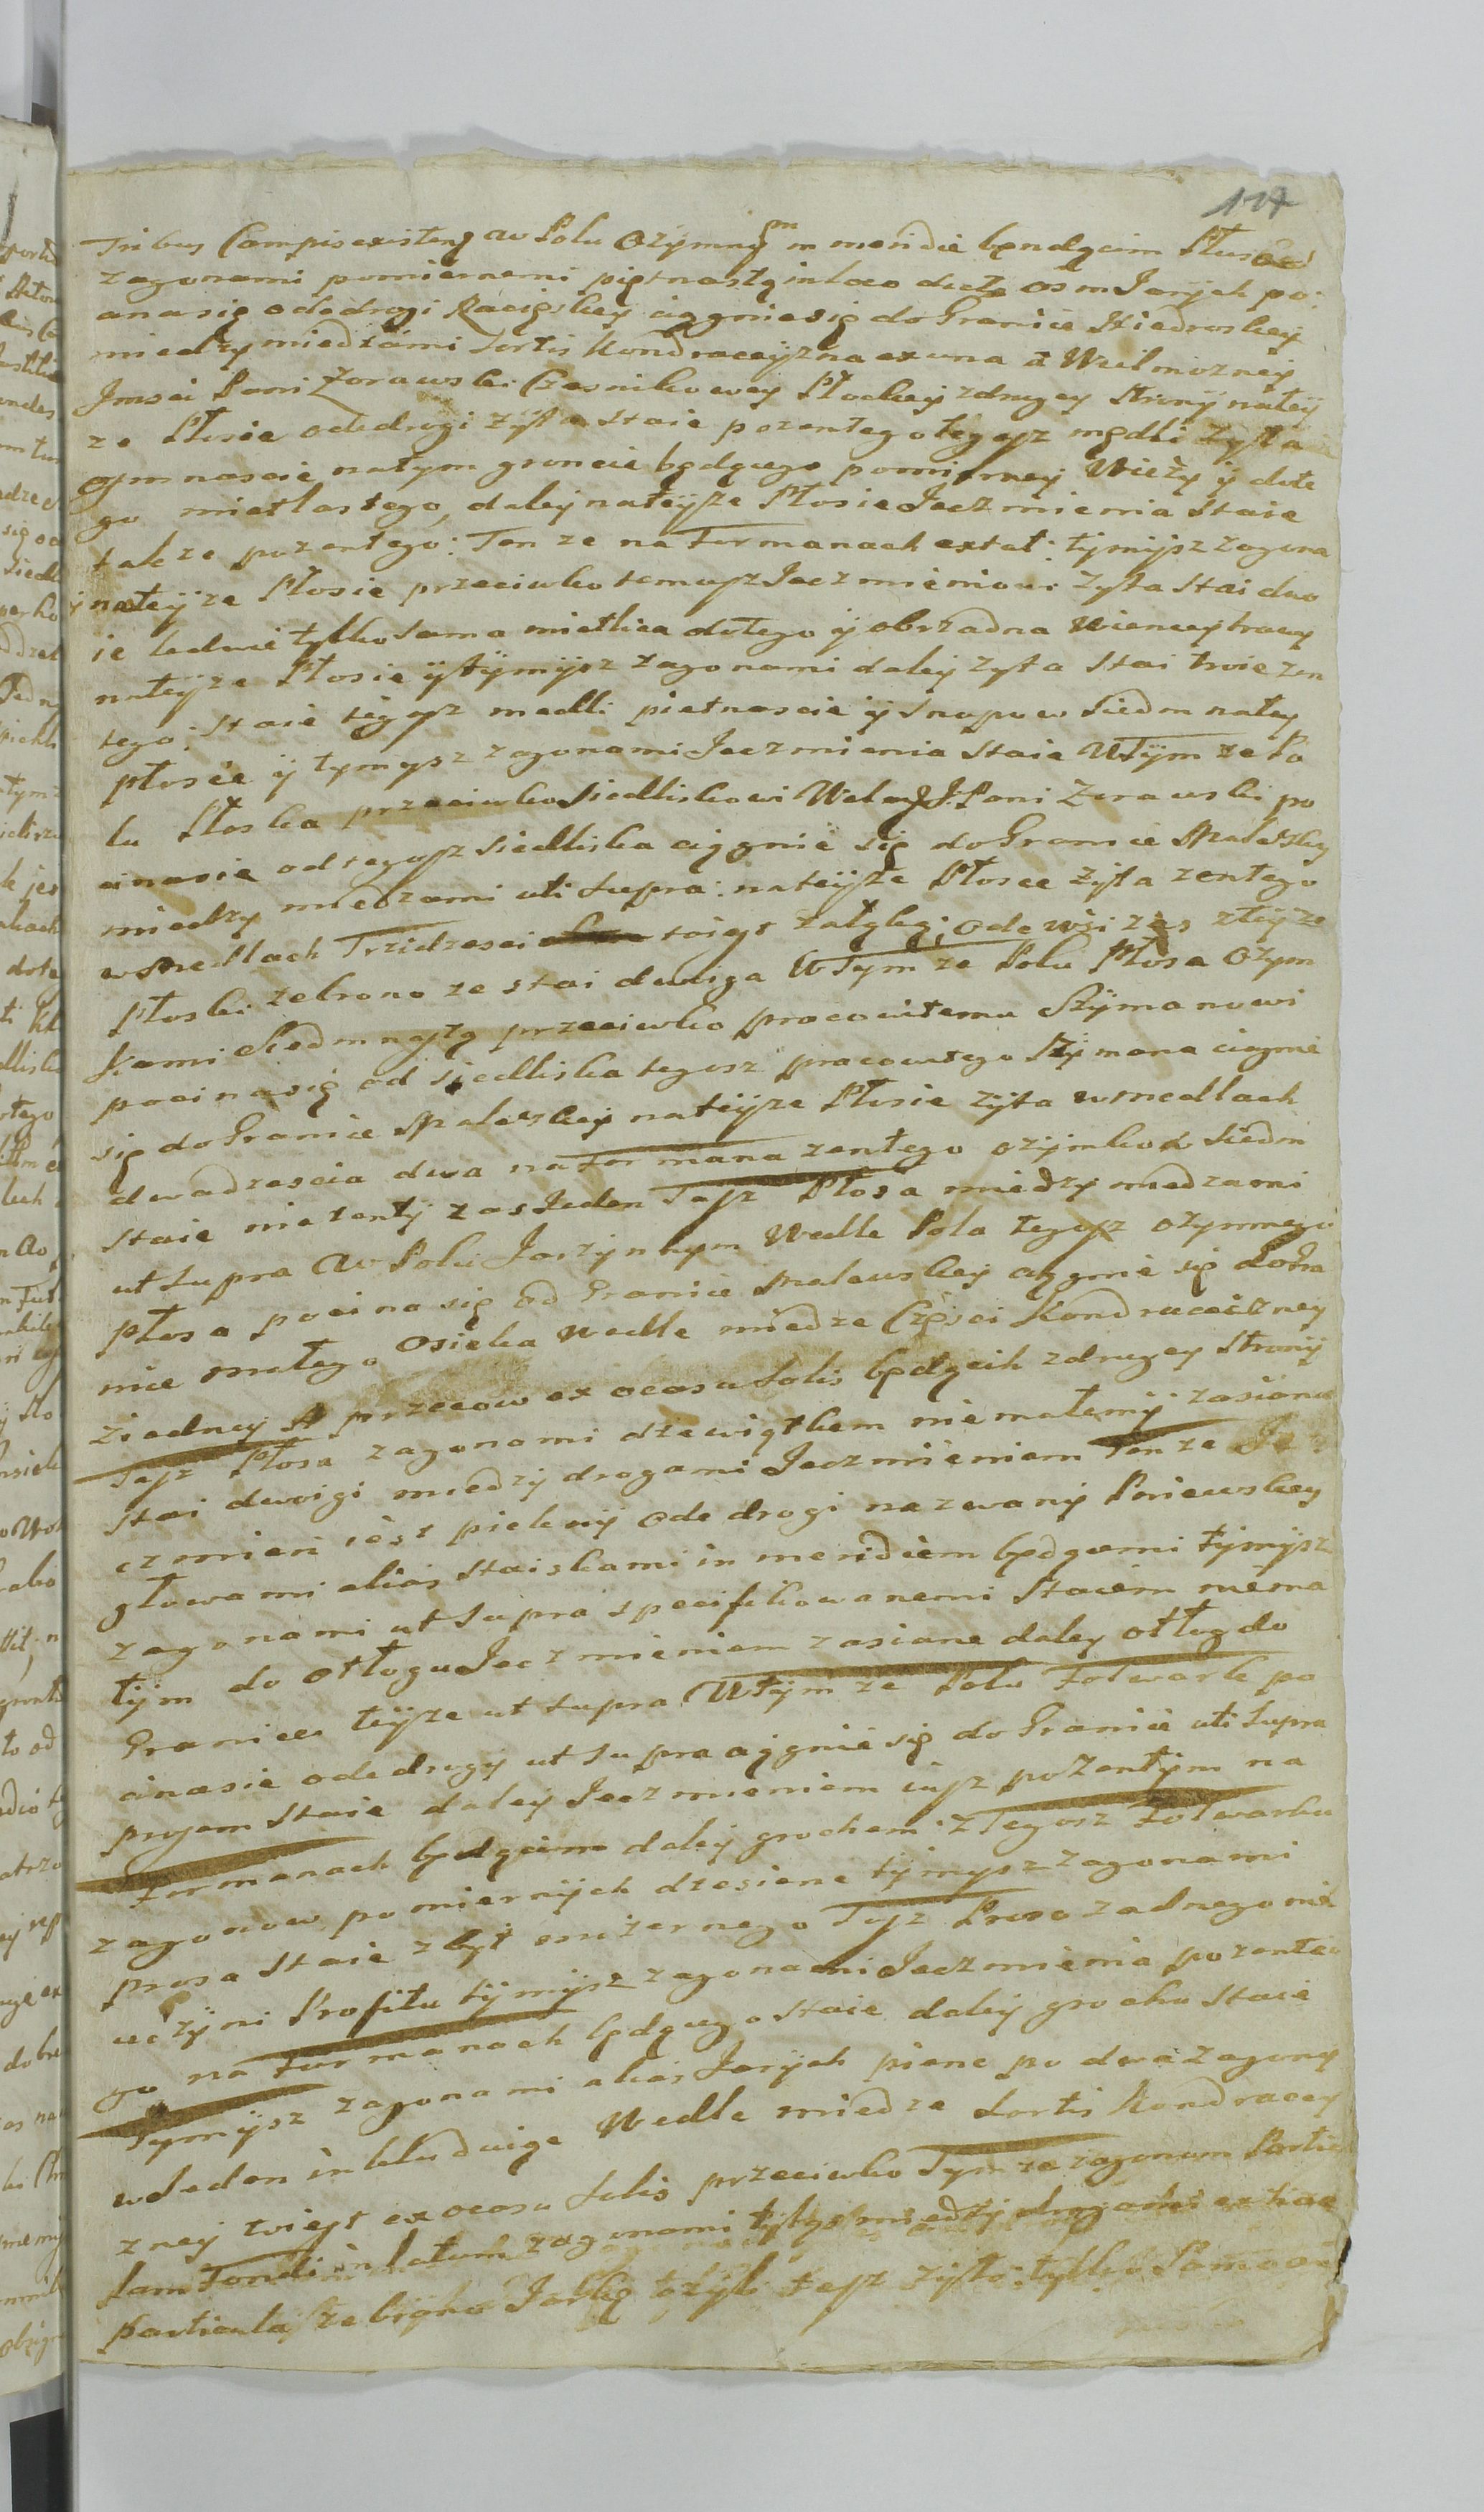 117
Tribus Campis existenẓ w Polu Ozymnym in meridie będącim Płus
zagonami pomiernemi piętnastą in loco duże osm Jarych po:
cina się ode drogi Raciąskiey ciągnie się do Granice Kiedroskiey
miedzy miedzami Sortis Kondraceyzna ex una a Wielmozney
Jmsci Pani Zorawski Czesnikowey Płockiey z drugey strony na tey
ze Płosie ode drogi zyta staie pozentego tegosz mędli zyta
osmnascie na tym gruncie będącego pomierney Wieży y duże
go mietlastego, daley na teyże Płosie Jeczmienia Staie
także pozentego: Ten ze na Formanach extat: tymysz zagona
na teyze Płosie przeciwko temusz Jeczmieniowi zyta Stai dwo
ie ledwie tylko sama mietlica dotego y obrzadna wiencey trawy
na teyze Płosie y tymysz zagonami daley zyta Stai troie zen
tego: staie tegosz medli pietnascie y Snopow Siedm na tey
płosie y tymysz zagonami Jeczmienia Staie W Tym ze Po
lu Płoska przeciwko Siedliskowi Wielm J. Pani Zorawski po
cinasie od tegosz siedliska ciągnie się do Granice Spalewsky
miedzy miedzami uti supra: na teyże Płosce żyta zentego
w medlach Trzidzesci toiest zalęlę; ode wsi zas z teyze
Płoski zebrano ze stai dwoiga W Tym ze Polu Płosa Ozym
kami Siedmnastą przeciwko pracowitemu Szymanowi
pocina się od siedliska tegosz pracowitego Szymana ciągnie
się do Granice Spalewskiey na teyze Płosie żyta w medlach
dwadzescia dwa na For mana zentego ozymkow Siedm
staie nie zenty zas Jeden Tasz Płosa miedzy miedzami
ut supra W Polu Jarzynnym Wedle Pola tegosz ozymnego
płosa pocina się od Granice Spalewskiey ciągnie się do Gra
nice małego Osieka wedle miedze Częsci Kondraceizney
z iedney A przecow ex ocasu Solis będących z drugey Strony
Tasz Płosa zagonami dziewiątkem nie małemy zasiana
Stai dwoigi miedzy drogami Jeczmieniem Ten ze Je
czmien iest piekny ode drogi nazwany Pniewskiey
głowami alias Staiskami in meridiem będącemi tymysz
zagonami ut supra specifikowanemi Staiem niema
łym do otłogu Jeczmieniem zasiane daley otłog do
Granice teyze ut supra W tym ze Polu Folwark po
cinasie ode drogy ut supra ciągnie się do Granice uti supra
prosem staie daley Jeczmieniem iusz pozentym na
Formanach będącim daley grochem z Tegosz Folwarku
zagonow pomiernych dzesiene tymysz zagonami
prosa Staie zbyt mizernego Tosz Proso zadnego nie
uczyni Profitu tymysz zagonami Jeczmienia pozentie
go na Furmanach będącego staie daley grochu Staie
Tymysz zagonami alias Jarych piene po dwa zagony
w Jeden inkludniąc Wedle miedze Sortis Kondracey
zney toiest ex ocasu Solis przeciwko Tym ze zagonum Partic
lam Fondi in latum zagonami miedzy drogami
particula ze tesz zyto: tylko